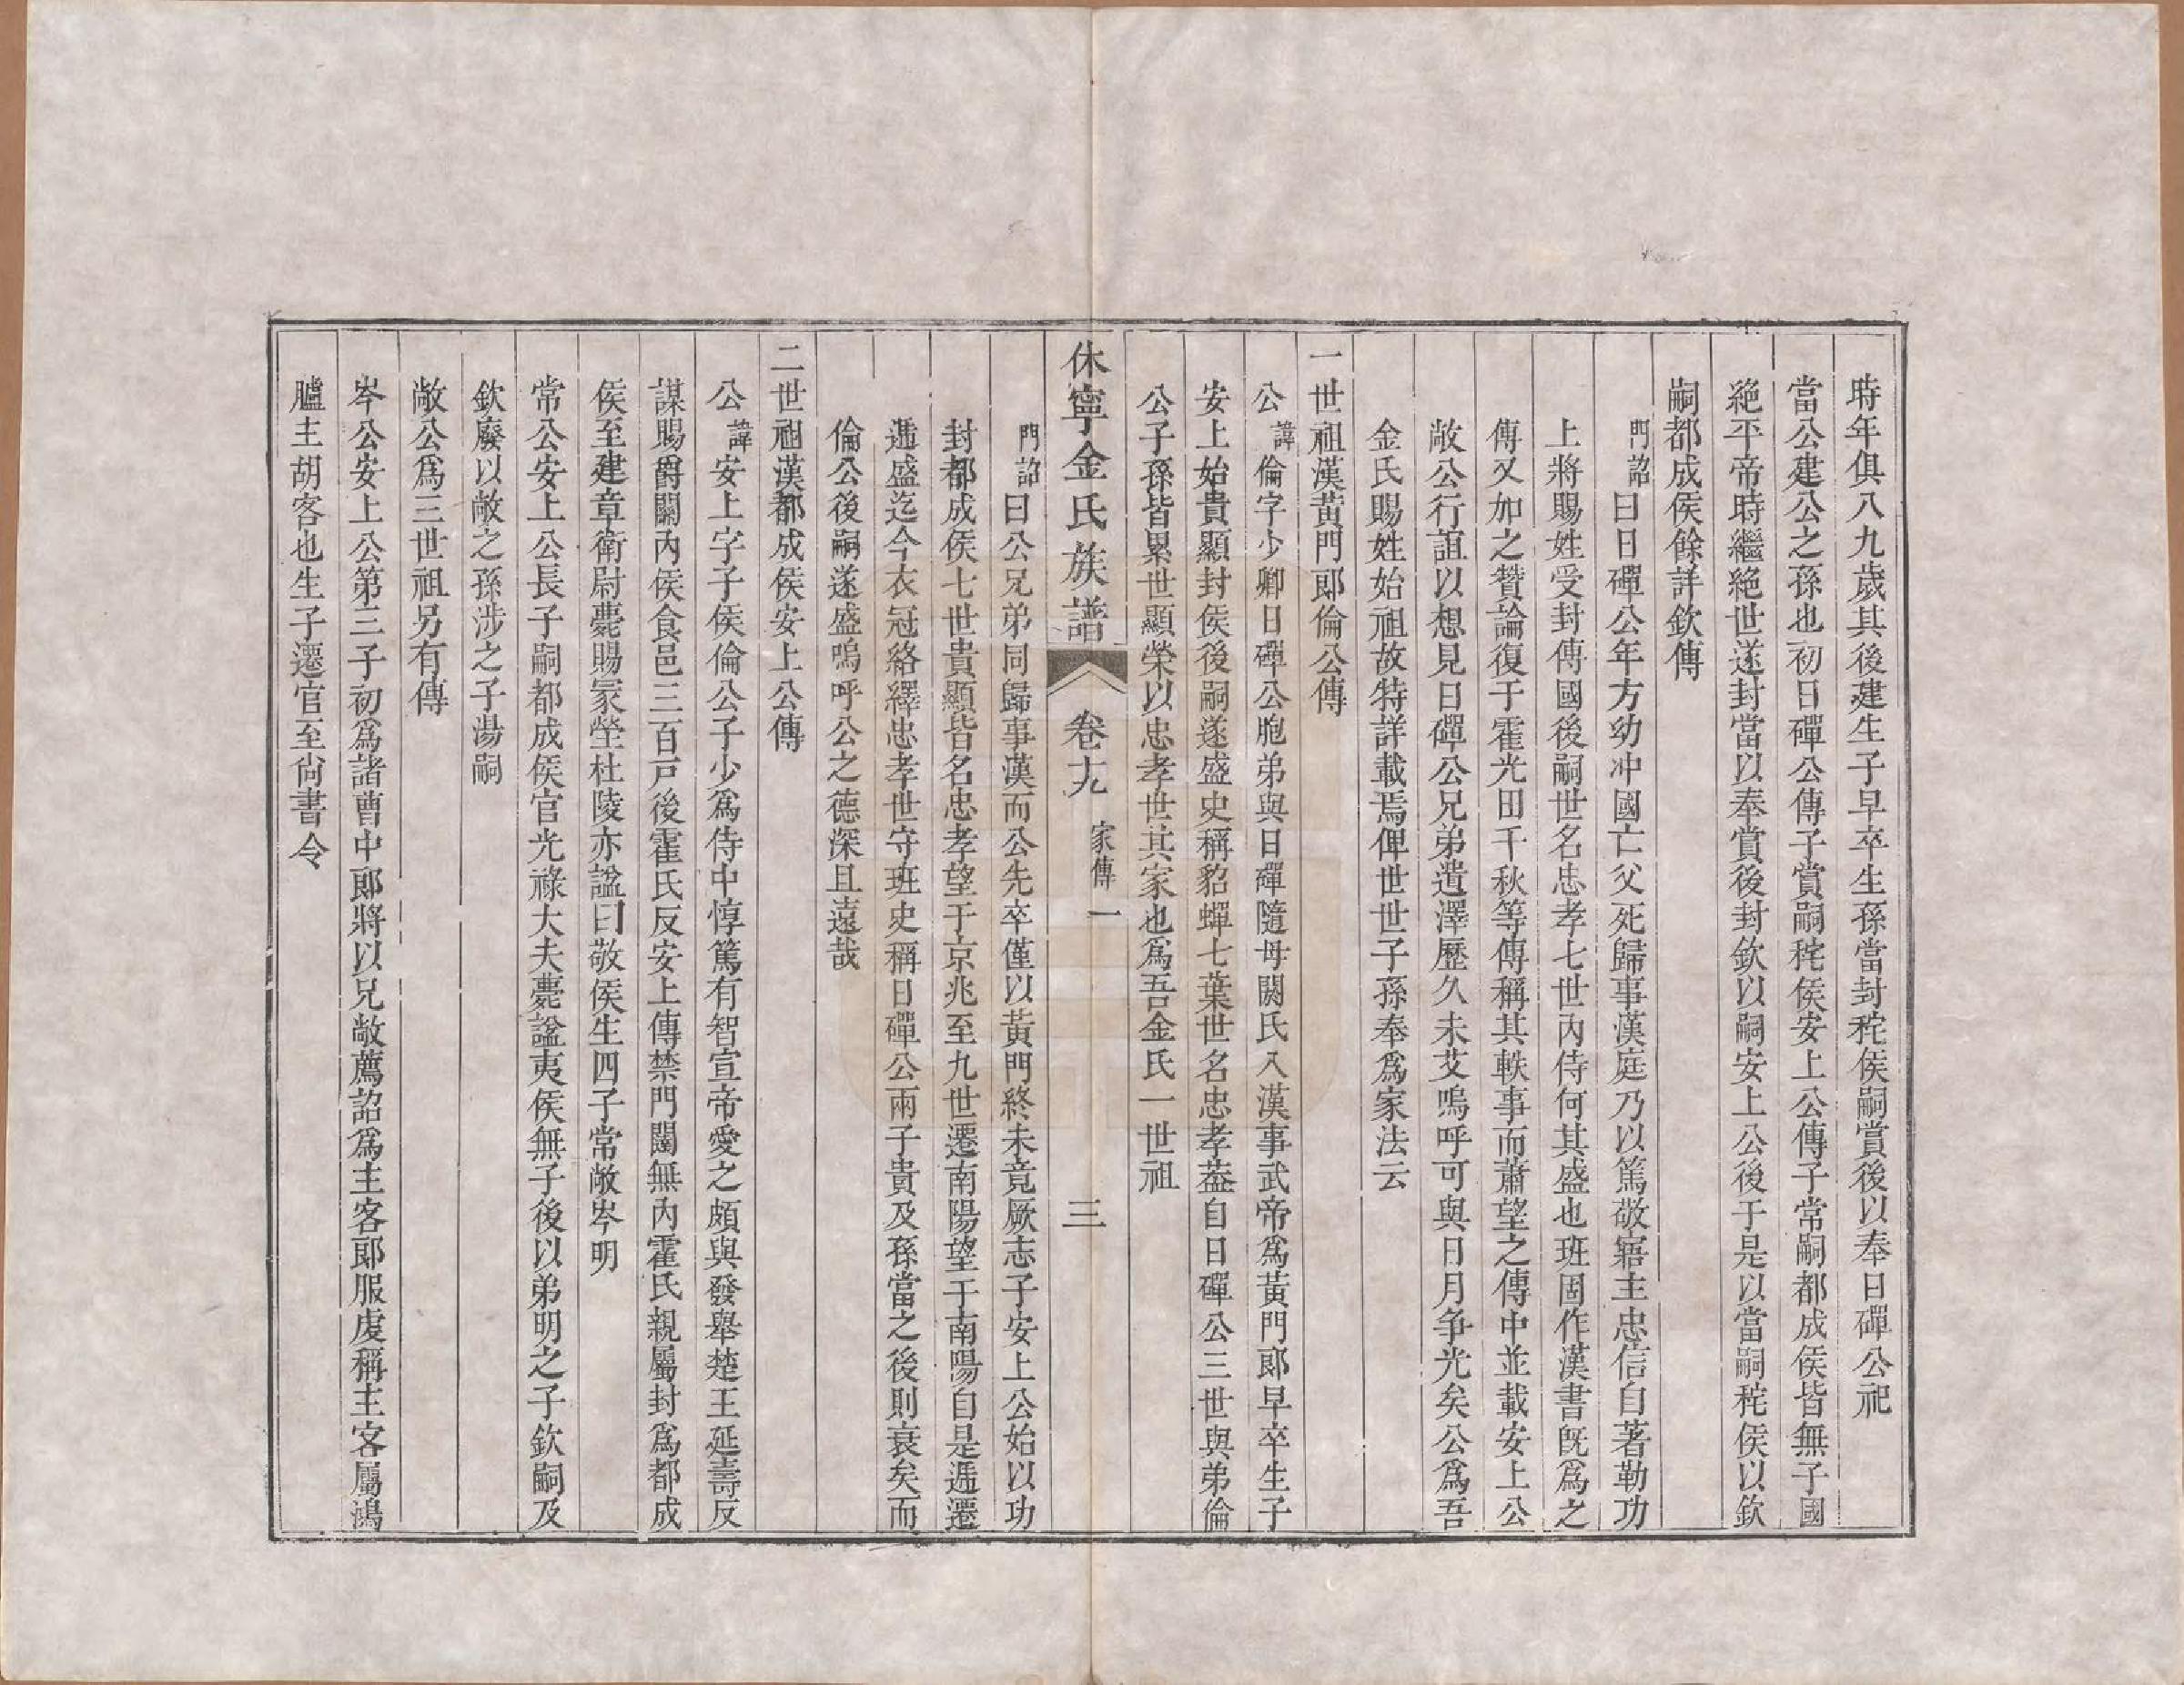 時年俱八九歲其後建生子早卒生孫當封秺侯嗣賞後以奉日磾公祀
當公建公之孫也初日磾公傳子賞嗣秺侯安上公傳子常嗣都成侯皆無子國
絕平帝時繼絕世遂封當以奉賞後封欽以嗣安上公後于是以當嗣秺侯以欽
嗣都成侯餘詳欽傳
門詔曰日磾公年方幼冲國亡父死歸事漢庭乃以篤敬寤主忠信自著勒功
上將賜姓受封傳國後嗣世名忠孝七世內侍何其盛也班固作漢書既為之
傳又加之贊論復于霍光田千秋等傳稱其軼事而蕭望之傳中並載安上公
敞公行誼以想見日磾公兄弟遺澤歷久未艾嗚呼可與日月争光矣公為吾
金氏賜姓始祖故特詳載焉俾世世子孫奉為家法云
一世祖漢黃門郎倫公傳
公諱倫字少卿日磾公胞弟與日磾隨母閼氏入漢事武帝為黃門郎早卒生子
安上始貴顯封侯後嗣遂盛史稱貂蟬七葉世名忠孝葢自日磾公三世與弟倫
公子孫皆累世顯榮以忠孝世其家也為吾金氏一世祖
休寧金氏族譜 卷九 家傳一 三
門詔曰公兄弟同歸事漢而公先卒僅以黃門終未竟厥志子安上公始以功
封都成侯七世貴顯皆名忠孝望于京兆至九世遷南陽望于南陽自是遞遷
遞盛迄今衣冠絡繹忠孝世守班史稱日磾公兩子貴及孫當之後則衰矣而
倫公後嗣遂盛嗚呼公之德深且遠哉
二世祖漢都成侯安上公傳
公諱安上字子侯倫公子少為侍中惇篤有智宣帝愛之頗與發舉楚王延壽反
謀賜爵關內侯食邑三百戶後霍氏反安上傳禁門闥無內霍氏親屬封為都成
侯至建章衛尉薨賜冢塋杜陵亦諡曰敬侯生四子常敞岑明
常公安上公長子嗣都成侯官光祿大夫薨諡夷侯無子後以弟明之子欽嗣及
欽廢以敞之孫涉之子湯嗣
敞公為三世祖另有傳
岑公安上公第三子初為諸曹中郎將以兄敞薦詔為主客郎服虔稱主客屬鴻
臚主胡客也生子遷官至尚書令